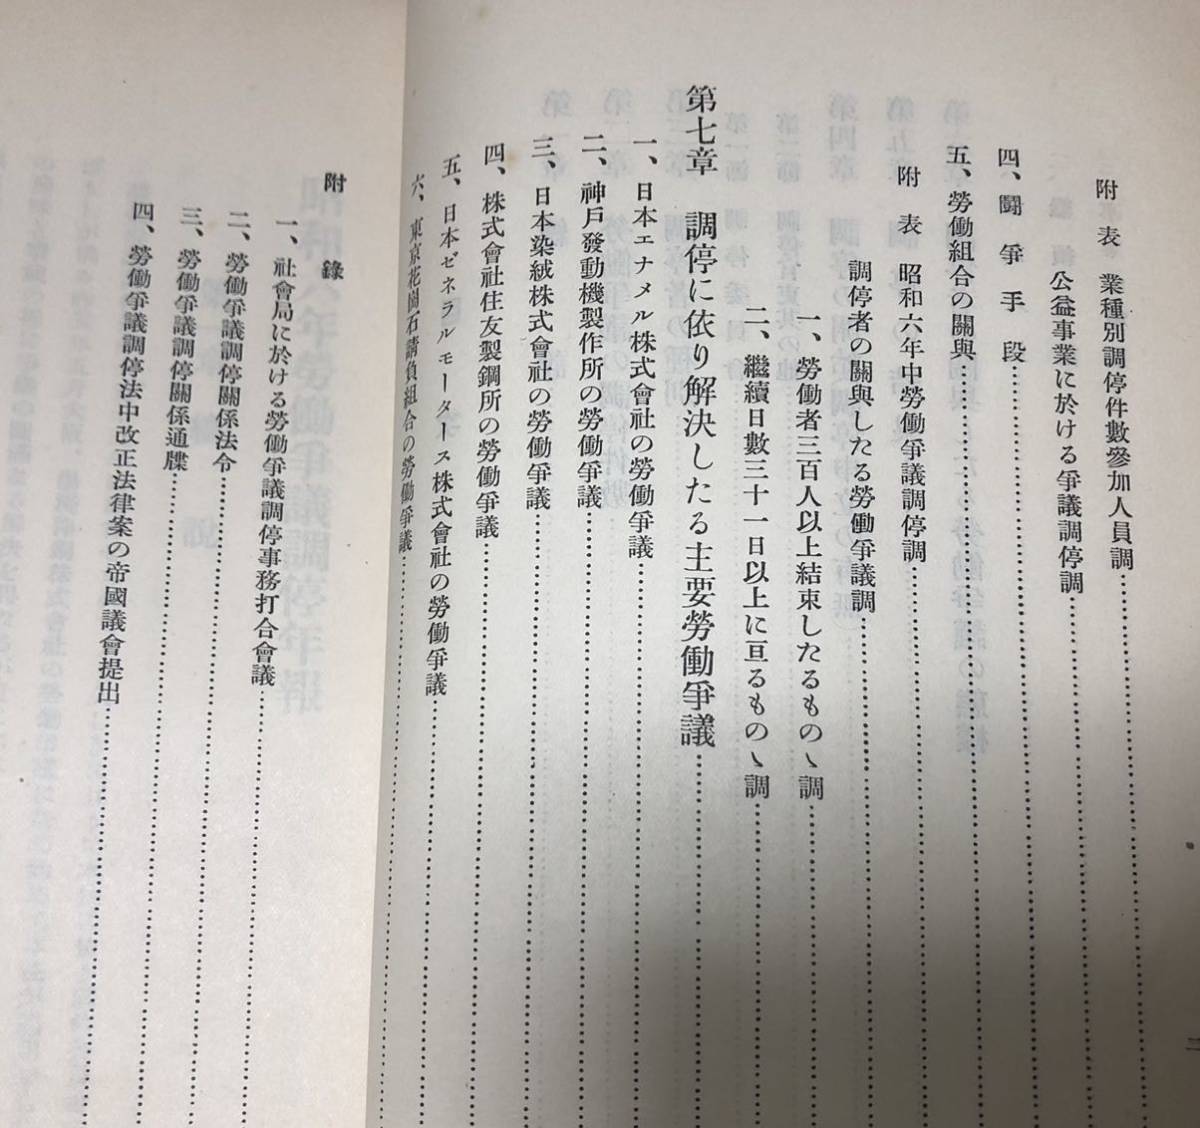 附表 業種別調停件數參加人員調
公益事業に於ける爭議調停調
四、鬪爭手段
五、勞働組合の關與
附表 昭和六年中勞働爭議調停調
調停者の關與したる勞働爭議調
一、勞働者三百人以上結束したるものゝ調
二、繼續日數三十一日以上に亘るものゝ調
第七章 調停に依り解決したる主要勞働爭議
一、日本エナメル株式會社の勞働爭議
二、神戶發動機製作所の勞働爭議
三、日本染絨株式會社の勞働爭議
四、株式會社住友製鋼所の勞働爭議
五、日本ゼネラルモータース株式會社の勞働爭議
六、東京花園石請負組合の勞働爭議
二
附錄
一、社會局に於ける勞働爭議調停事務打合會議
二、勞働爭議調停關係法令
三、勞働爭議調停關係通牒
四、勞働爭議調停法中改正法律案の帝國議會提出